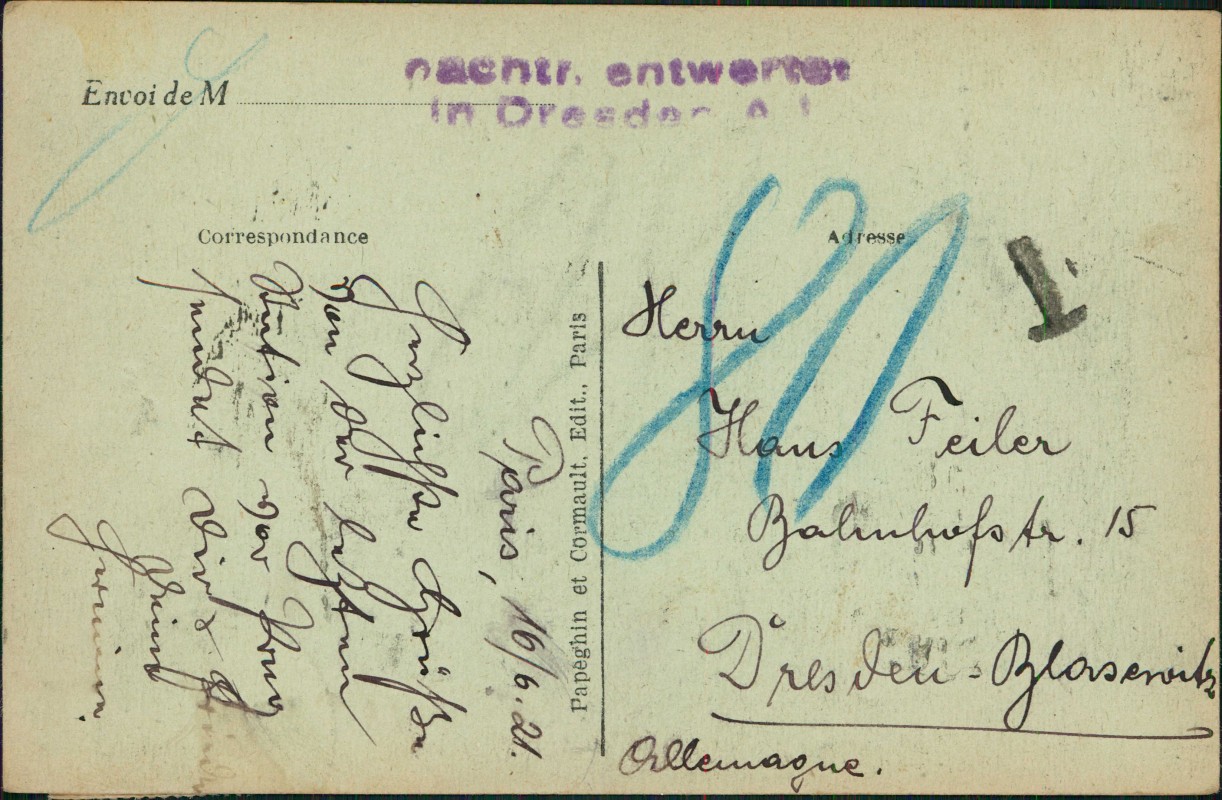 nachtr. entwertet
in Dresden A. 1
Envoi de M
Correspondance
Adresse
80
T
Paris, 16/6. 21.
Herzliche Grüße
von der letzten
Station vor
sendet Dir
Papeghin et Cormault, Edit., Paris
Herrn
Hans Feiler
Bahnhofstr. 15
Dresden-Blasewitz
Allemagne.